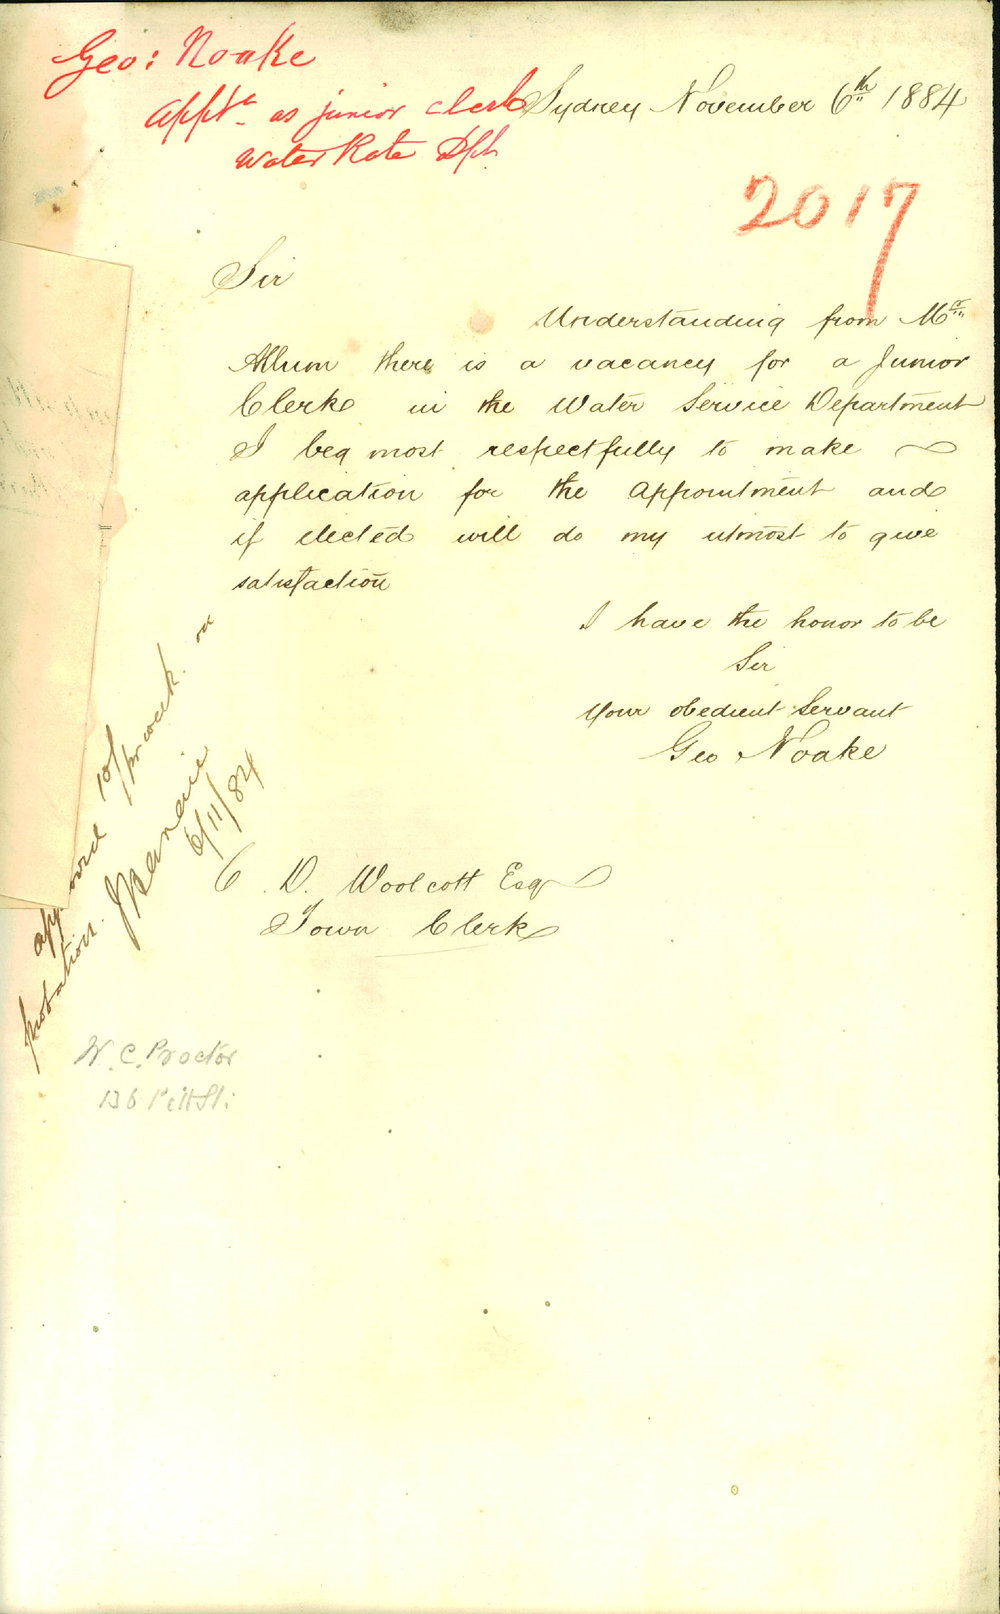 Geo: Noake
Appt^n as junior clerk
Water Rate Dpt
Sydney November 6th 1884
2017
Sir
Understanding from Mr
Allum there is a vacancy for a Junior
Clerk in the Water Service Department
I beg most respectfully to make
application for the Appointment and
if elected will do my utmost to give
satisfaction
I have the honor to be
Sir
Your obedient Servant
Geo Noake
approved 10/ pr week on
probation.
6/11/84
C. D. Woolcott Esq
Town Clerk
W. C. Proctor
136 Pitt St: